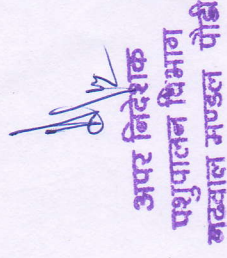 अपर निदेशक
पशुपालन विभाग
गढवाल मण्डल पौडी